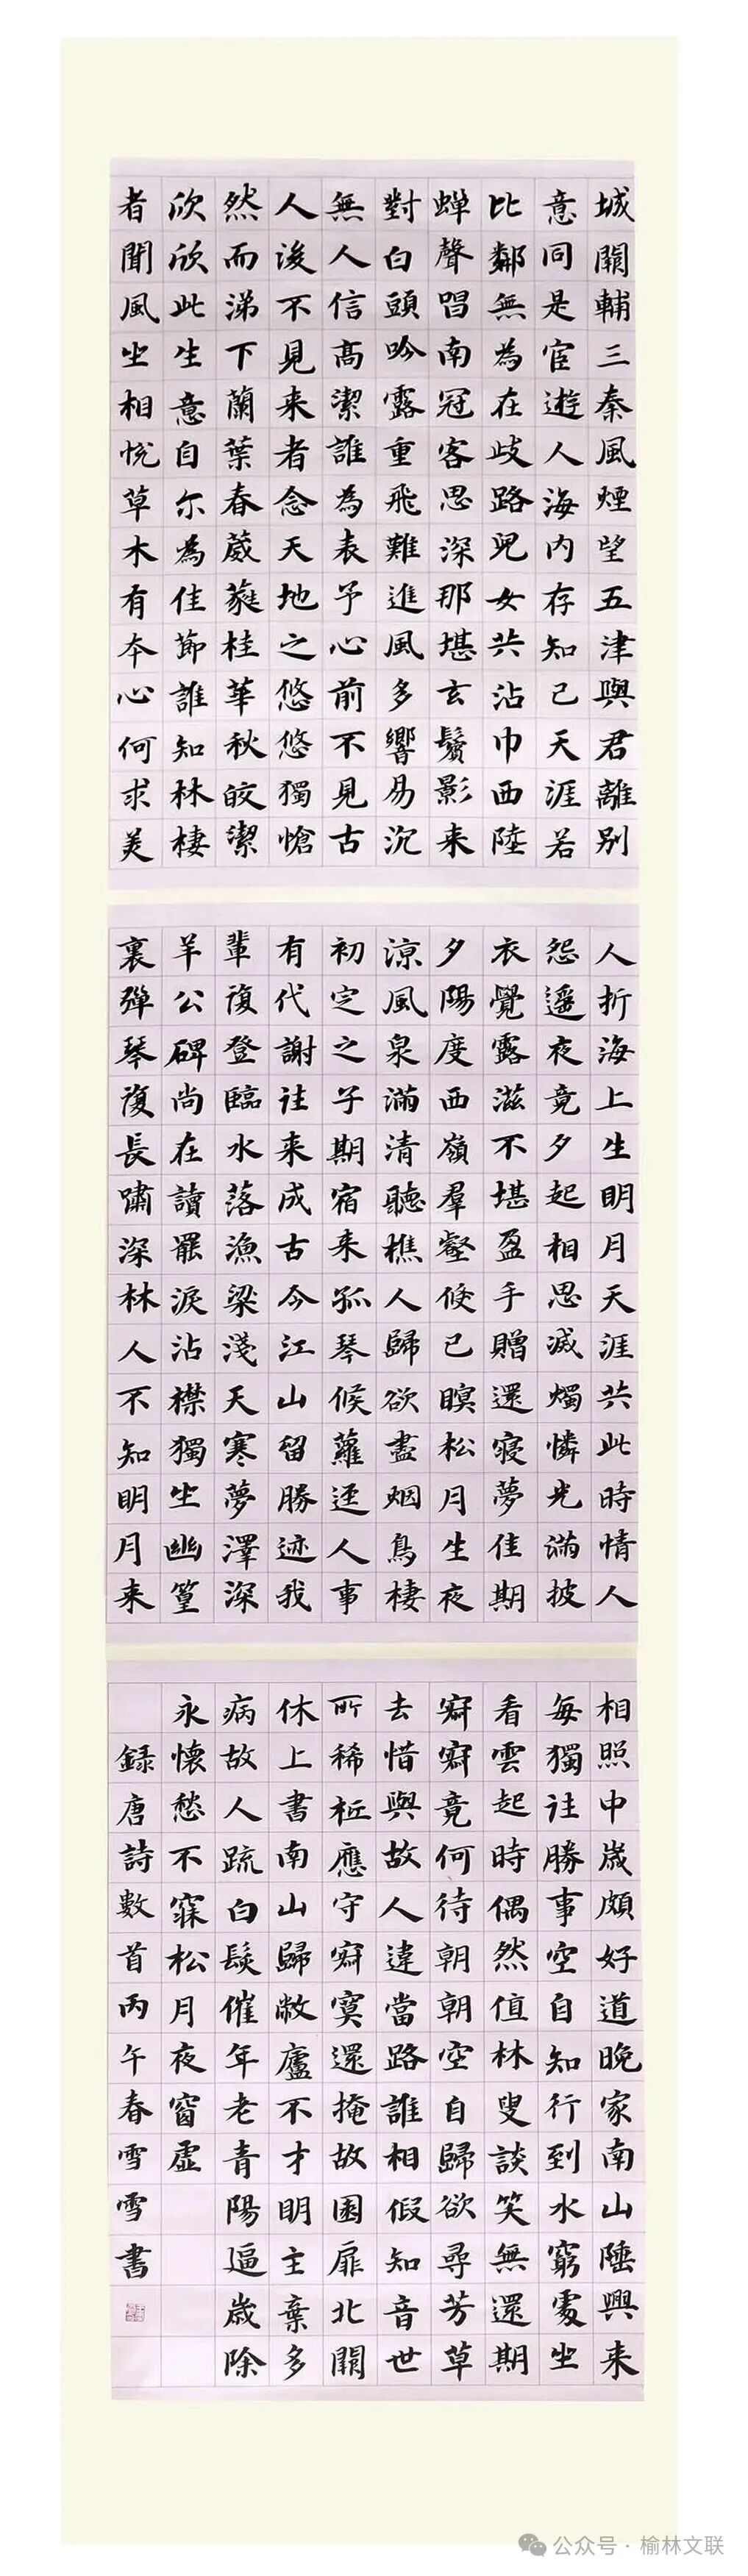 城闕輔三秦風煙望五津與君離別
意同是宦遊人海內存知己天涯若
比鄰無為在歧路兒女共沾巾西陸
蟬聲唱南冠客思深那堪玄鬢影来
對白頭吟露重飛難進風多響易沉
無人信高潔誰為表予心前不見古
人後不見来者念天地之悠悠獨愴
然而涕下蘭葉春葳蕤桂華秋皎潔
欣欣此生意自尔為佳節誰知林棲
者聞風坐相悅草木有本心何求美
人折海上生明月天涯共此時情人
怨遥夜竟夕起相思滅燭憐光滿披
衣覺露滋不堪盈手贈還寢夢佳期
夕陽度西嶺羣壑倏已瞑松月生夜
涼風泉滿清聽樵人歸欲盡烟鳥棲
初定之子期宿来孤琴候蘿逕人事
有代謝往来成古今江山留勝迹我
輩復登臨水落漁梁淺天寒夢澤深
羊公碑尚在讀罷淚沾襟獨坐幽篁
裏彈琴復長嘯深林人不知明月来
相照中歲頗好道晚家南山陲興来
每獨往勝事空自知行到水窮處坐
看雲起時偶然值林叟談笑無還期
寂寂竟何待朝朝空自歸欲尋芳草
去惜與故人違當路誰相假知音世
所稀祗應守寂寞還掩故園扉北闕
休上書南山歸敝廬不才明主棄多
病故人疏白髮催年老青陽逼歲除
永懷愁不寐松月夜窗虛
録唐詩數首丙午春雪雪書
公众号·榆林文联